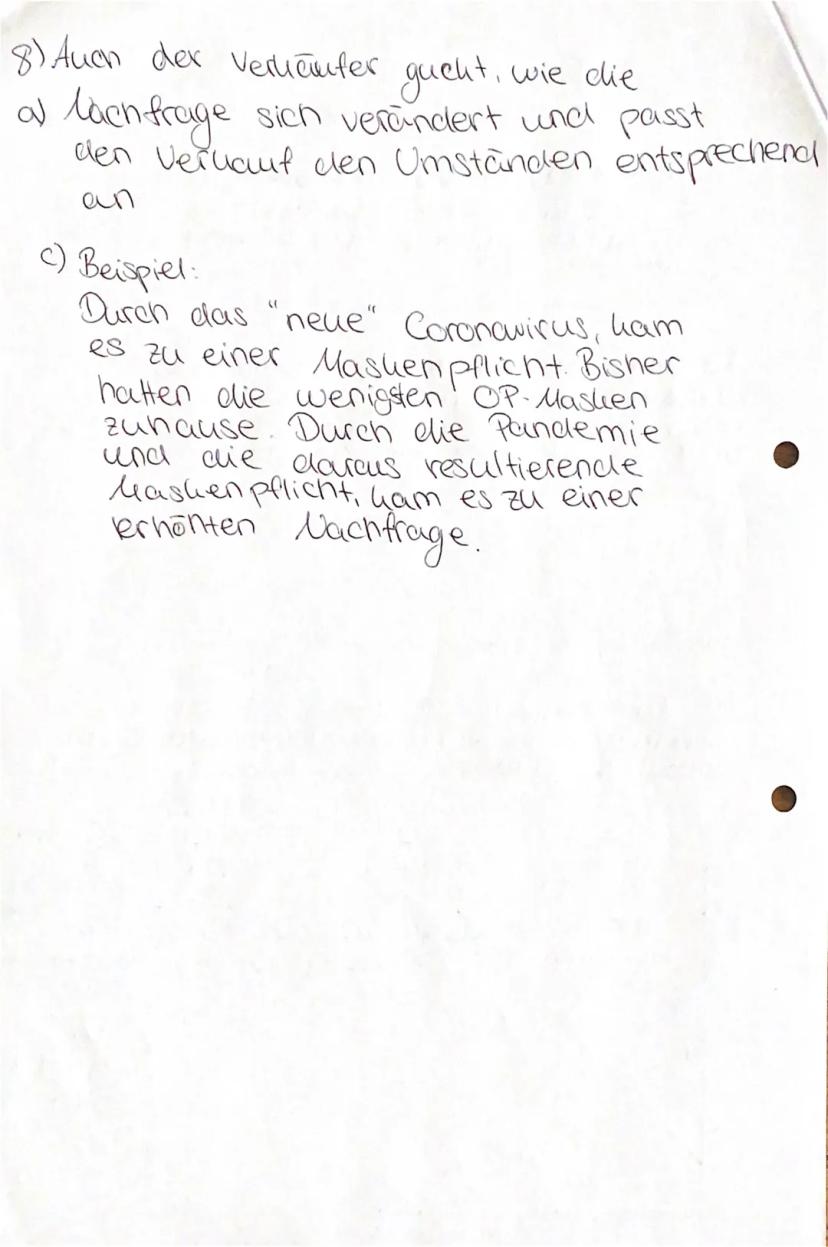 8) Auch der Verkäufer guckt, wie die
a) Nachfrage sich verändert und passt
den Verkauf den Umständen entsprechend
an
c) Beispiel:
Durch das "neue" Coronavirus, kam
es zu einer Maskenpflicht. Bisher
hatten die wenigsten OP-Masken
zuhause. Durch die Pandemie
und die daraus resultierende
Maskenpflicht, kam es zu einer
erhöhten Nachfrage.